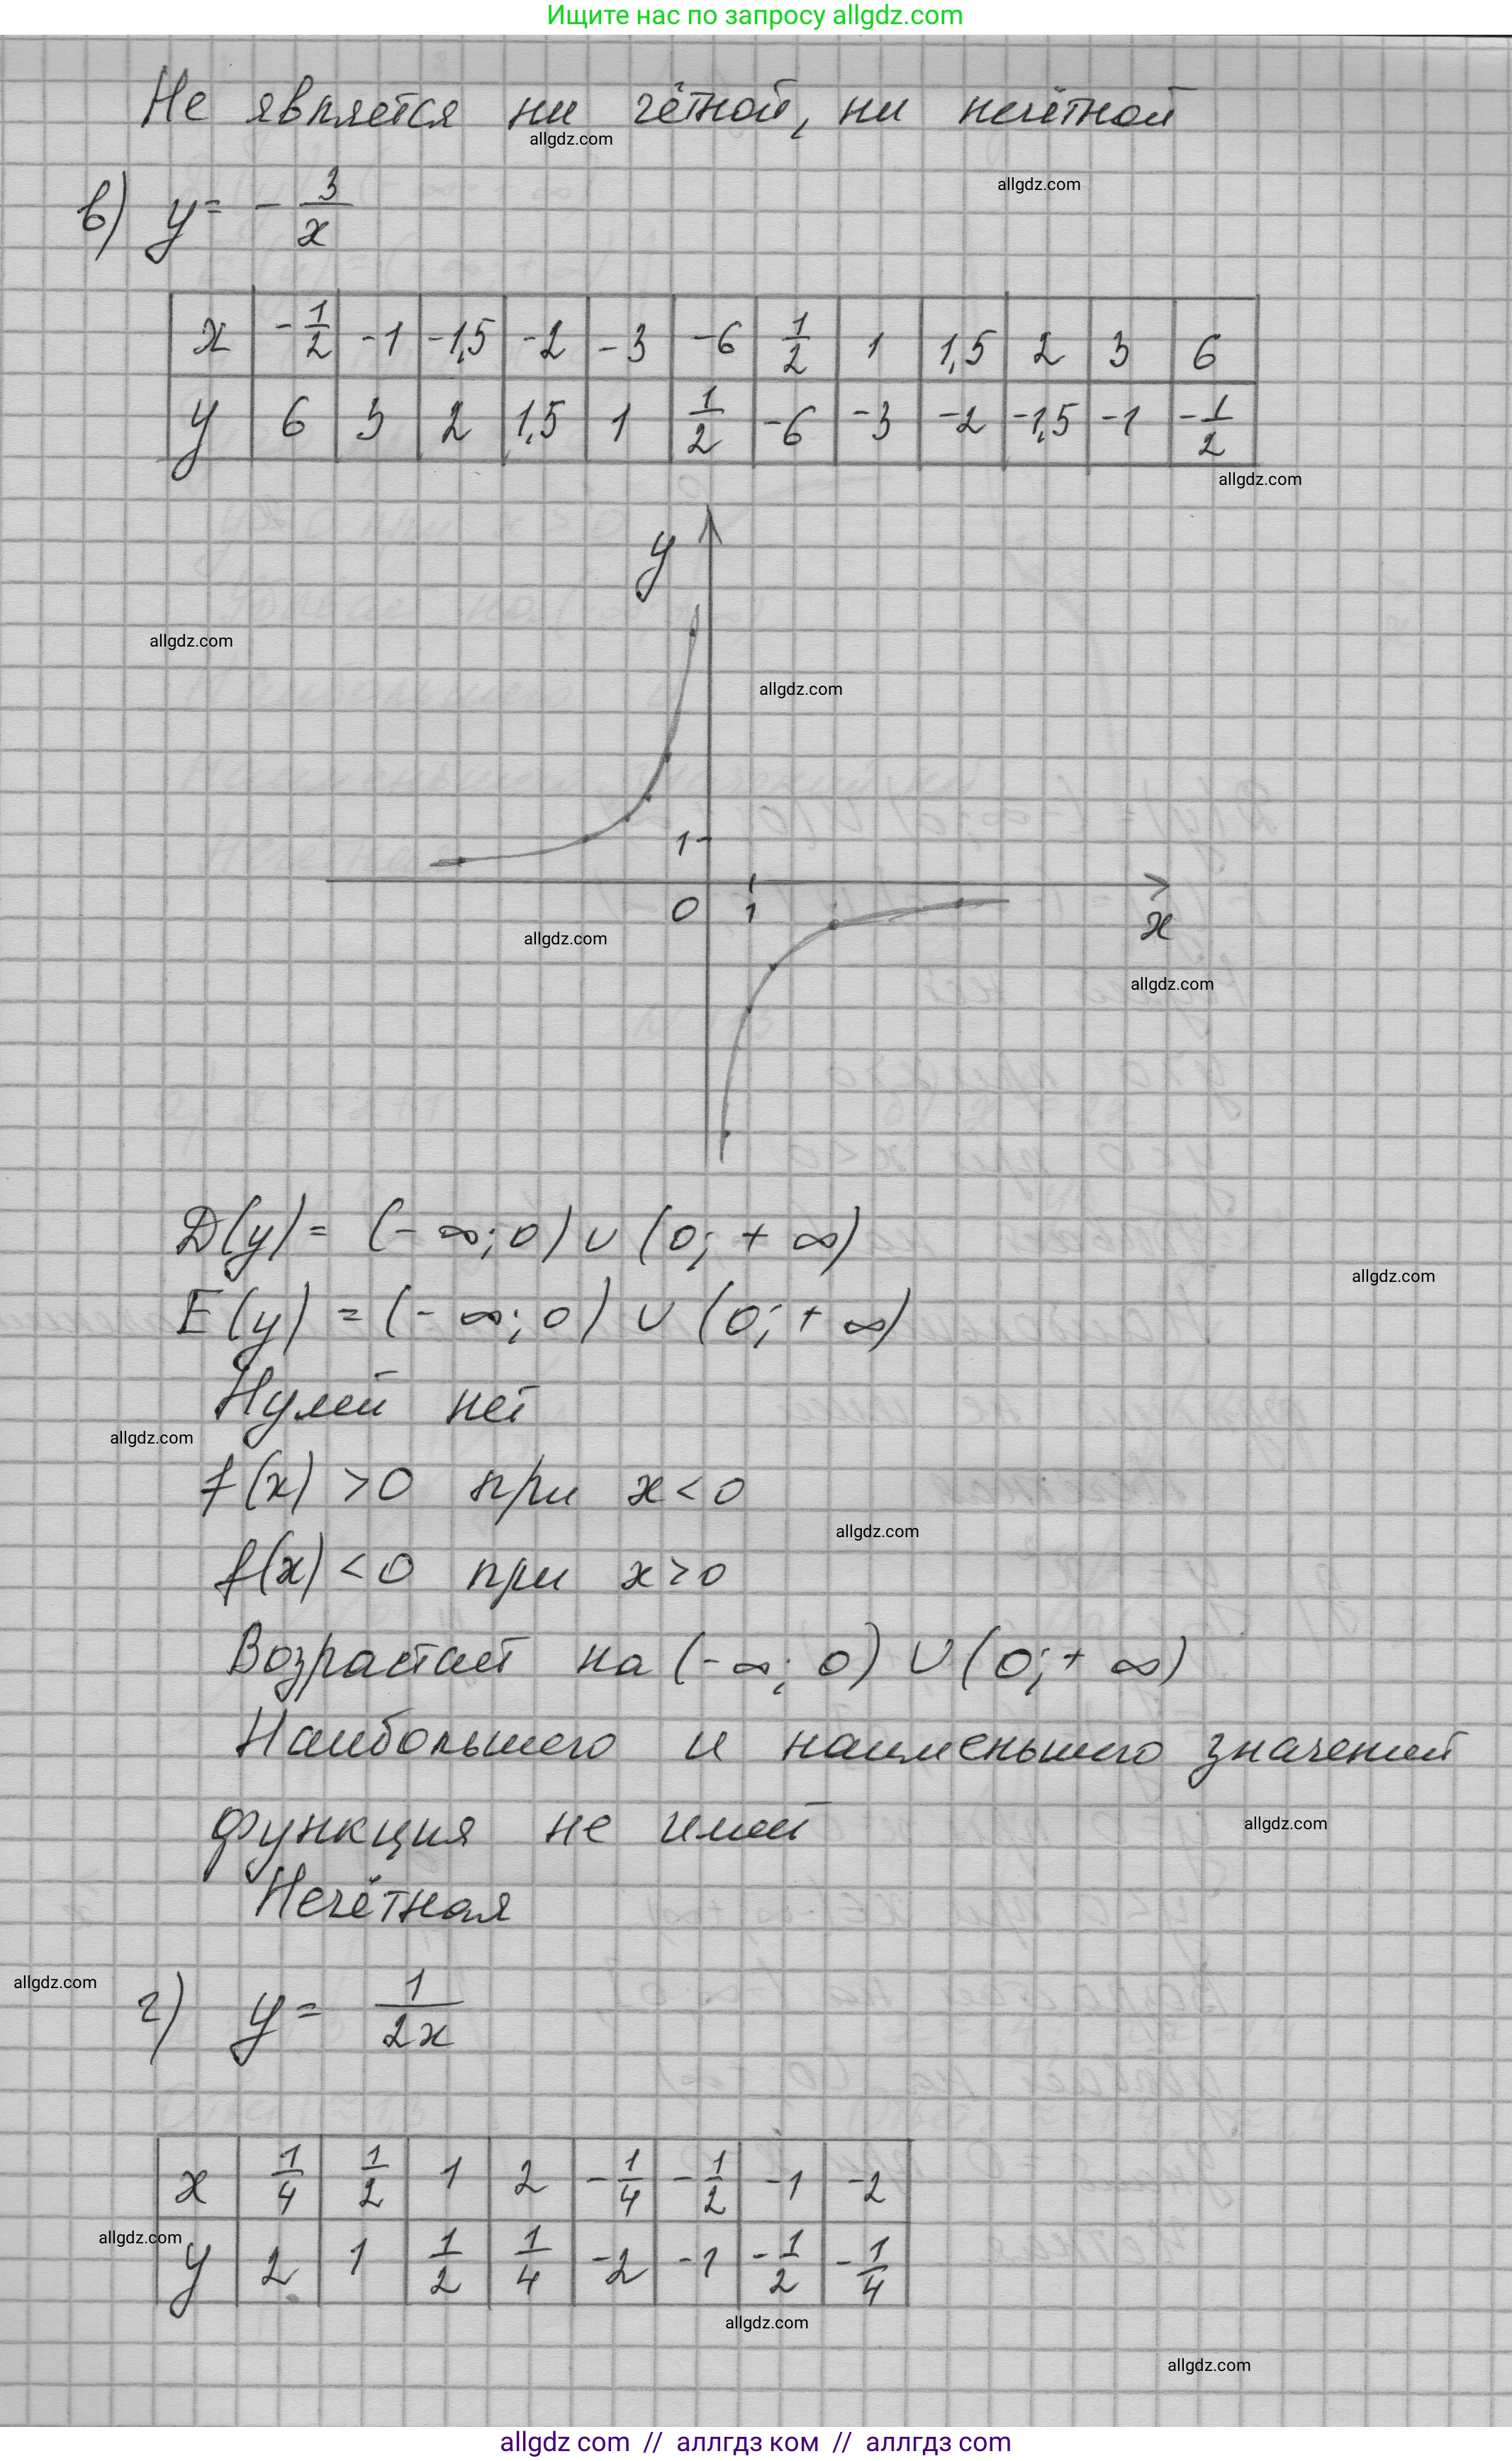 Ищите нас по запросу allgdz.com
Не является ни чётной, ни нечётной
allgdz.com
allgdz.com
в) y = - 3/x
x | -1/2 | -1 | -1,5 | -2 | -3 | -6 | 1/2 | 1 | 1,5 | 2 | 3 | 6
y | 6 | 3 | 2 | 1,5 | 1 | 1/2 | -6 | -3 | -2 | -1,5 | -1 | -1/2
allgdz.com
y
allgdz.com
allgdz.com
1
0 1
x
allgdz.com
allgdz.com
D(y) = (- ∞; 0) ∪ (0; + ∞)
allgdz.com
E(y) = (- ∞; 0) ∪ (0; + ∞)
Нулей нет
allgdz.com
f(x) > 0 при x < 0
allgdz.com
f(x) < 0 при x > 0
Возрастает на (- ∞; 0) ∪ (0; + ∞)
Наибольшего и наименьшего значений
функция не имеет
allgdz.com
Нечётная
allgdz.com
г) y = 1/2x
x | 1/4 | 1/2 | 1 | 2 | -1/4 | -1/2 | -1 | -2
allgdz.com
y | 2 | 1 | 1/2 | 1/4 | -2 | -1 | -1/2 | -1/4
allgdz.com
allgdz.com
allgdz com // аллгдз ком // аллгдз com